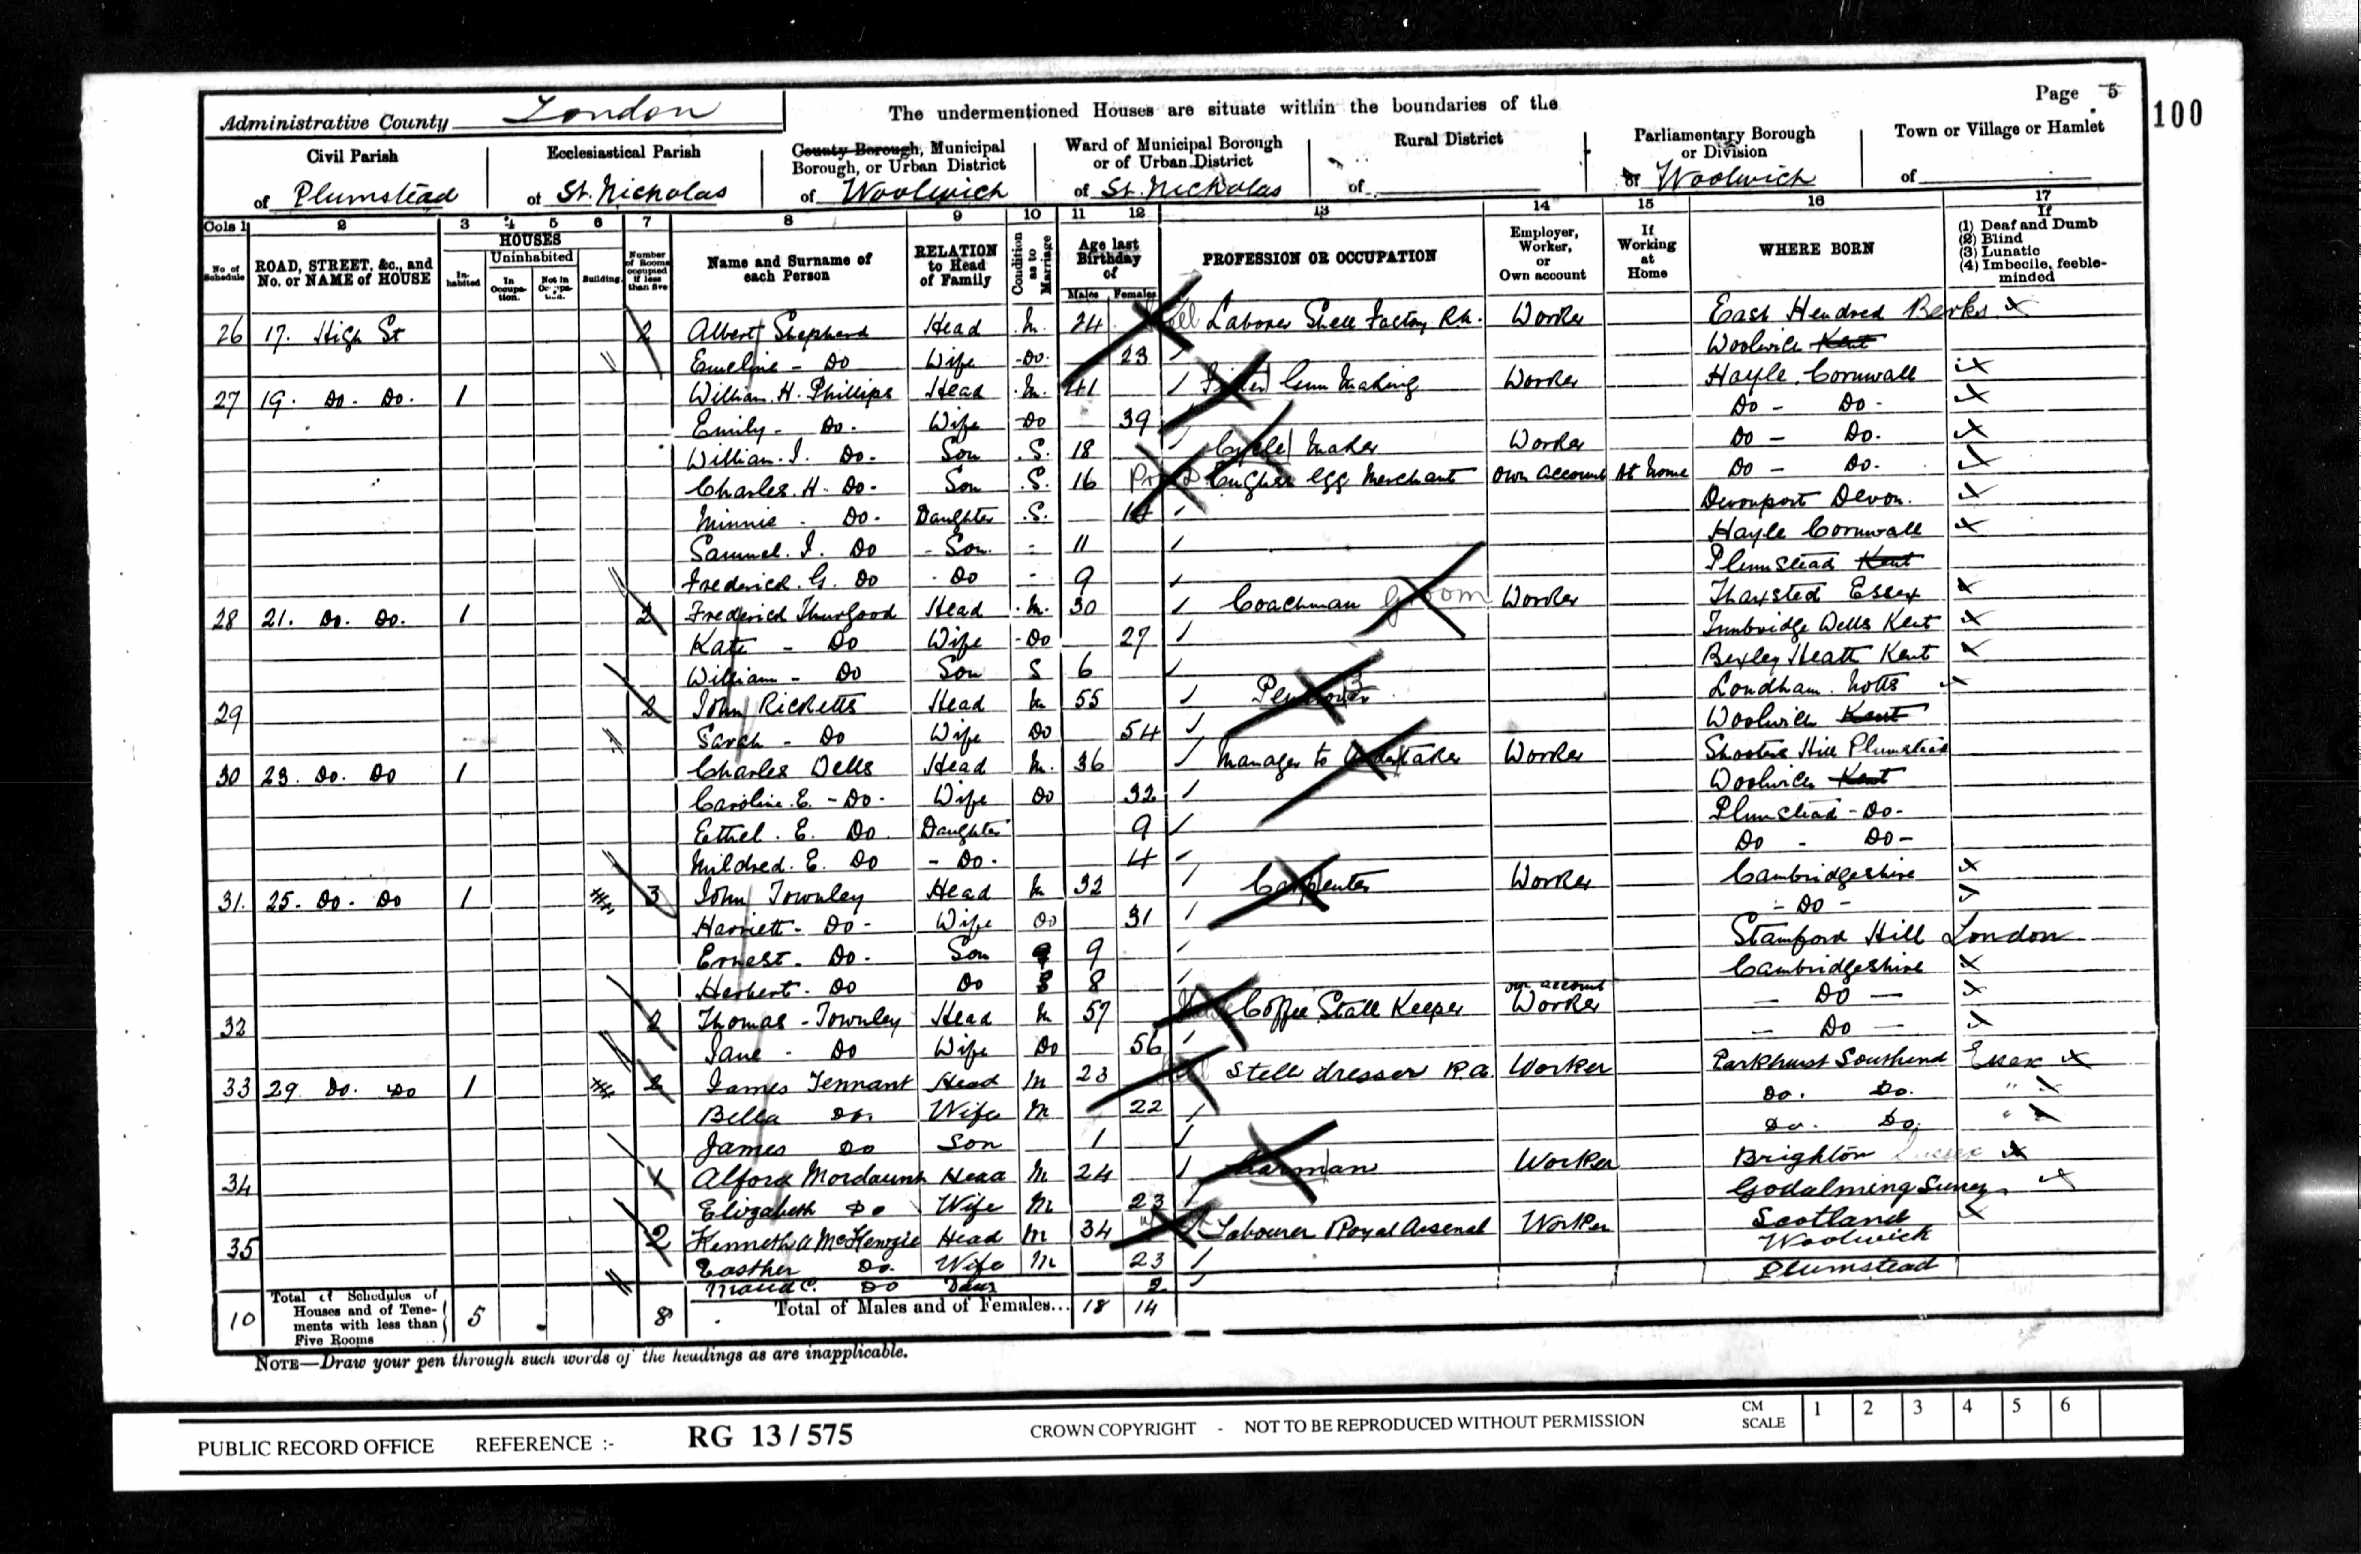 Page 5
100
Administrative County London
The undermentioned Houses are situate within the boundaries of the
Civil Parish of Plumstead
Ecclesiastical Parish of St. Nicholas
County Borough, Municipal Borough, or Urban District of Woolwich
Ward of Municipal Borough or of Urban District of St. Nicholas
Rural District of
Parliamentary Borough or Division of Woolwich
Town or Village or Hamlet of
Cols 1 2 3 4 5 6 7 8 9 10 11 12 13 14 15 16 17
No. of Schedule
ROAD, STREET, &c., and No. or NAME of HOUSE
HOUSES
Inhabited
Uninhabited
In Occupation.
Not in Occupation.
Building.
Number of Rooms occupied if less than five
Name and Surname of each Person
RELATION to Head of Family
Condition as to Marriage
Age last Birthday of
Males Females
PROFESSION OR OCCUPATION
Employer, Worker, or Own account
If Working at Home
WHERE BORN
If (1) Deaf and Dumb (2) Blind (3) Lunatic (4) Imbecile, feeble-minded
26 17. High St 2 Albert Shepherd Head M. 24 Laborer Shell Factory R.A. Worker East Hendred Berks
Emeline - Do Wife - Do. 23 Woolwich Kent
27 19. Do. Do. 1 William. H. Phillips Head M. 41 Gun Making Worker Hayle, Cornwall
Emily - Do. Wife Do 39 Do - Do -
William. J. Do. Son S. 18 Cycle Maker Worker Do - Do.
Charles. H. Do. Son S. 16 Egg Merchant Own Account At Home Do - Do.
Minnie - Do. Daughter S. 14 Devonport Devon.
Samuel. J. Do - Son. - 11 Hayle Cornwall
Frederick. G. Do Do - 9 Plumstead Kent
28 21. Do. Do. 1 2 Frederick Thurgood Head M. 30 Coachman Groom Worker Thaxted Essex
Kate - Do Wife - Do 27 Tunbridge Wells Kent
William - Do Son S 6 Bexley Heath Kent
29 2 John Ricketts Head M 55 Pensioner Londham. Notts
Sarah - Do Wife Do 54 Woolwich Kent
30 23. Do. Do 1 Charles Dells Head M. 36 Manager to Undertaker Worker Shooters Hill Plumstead
Caroline. E. - Do - Wife Do 32 Woolwich Kent
Ethel. E. Do. Daughter 9 Plumstead - Do -
Mildred. E. Do - Do. 4 Do - Do -
31. 25. Do. Do 1 3 John Townley Head M 32 Carpenter Worker Cambridgeshire
Harriett - Do - Wife Do 31 - Do -
Ernest. Do. Son 9 Stamford Hill London
Herbert. Do Do 8 Cambridgeshire
32 2 Thomas - Townley Head M 57 Coffee Stall Keeper own account Worker - Do -
Jane - Do Wife Do 56 - Do -
33 29 Do. Do 1 2 James Tennant Head M 23 dresser R.A. Worker Parkhurst Southend Essex
Bella Do. Wife M 22 Do. Do. "
James Do Son 1 Do. Do. "
34 1 Alford Mordaunt Head M 24 Carman Worker Brighton Sussex
Elizabeth Do Wife M 23 Godalming Surrey
35 2 Kenneth A McKenzie Head M 34 Labourer Royal Arsenal Worker Scotland
Easther Do. Wife M 23 Woolwich
Maud C. Do Daur 2 Plumstead
10 Total of Schedules of Houses and of Tenements with less than Five Rooms 5 8 Total of Males and of Females... 18 14
NOTE—Draw your pen through such words of the headings as are inapplicable.
PUBLIC RECORD OFFICE REFERENCE :- RG 13 / 575 CROWN COPYRIGHT - NOT TO BE REPRODUCED WITHOUT PERMISSION CM SCALE 1 2 3 4 5 6